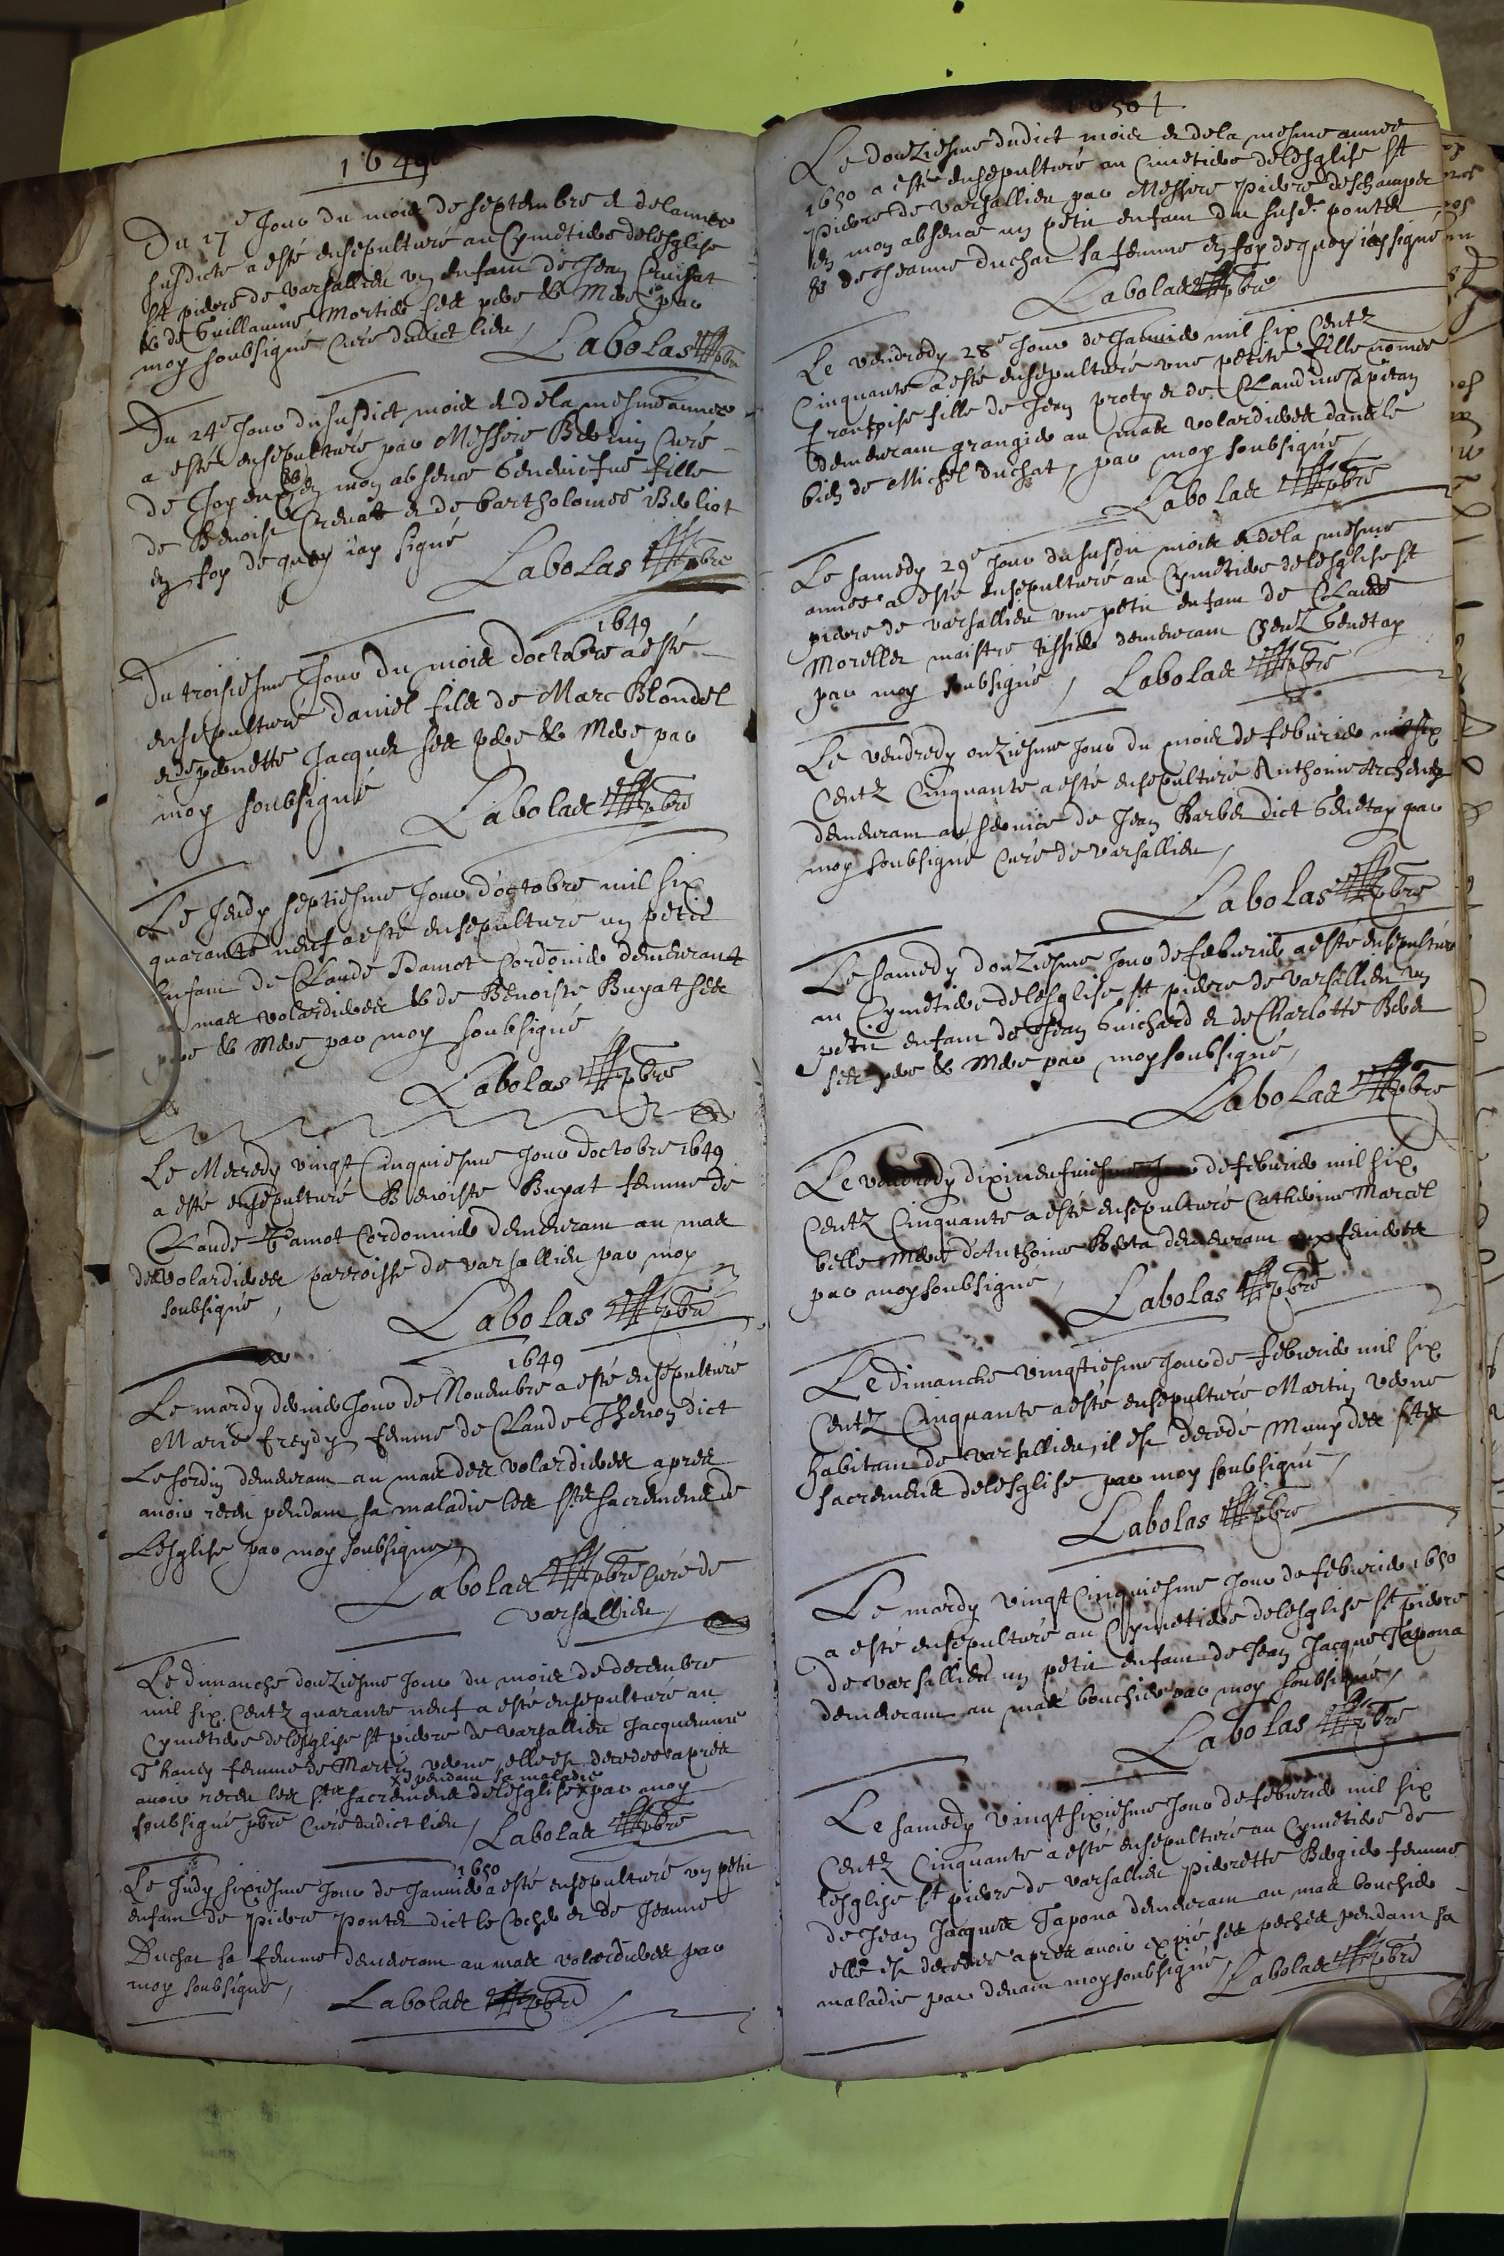 1649
Du 17e Jour du mois de septembre & de lannee
susdicte a esté ensepulturé au Cymetiere de lesglise
st pierre de varsallieu un enfant de Jean Cruisat
& de Guillaume Mortier ses pere & Mere par
moy soubsigné Curé dudict lieu / Labolas pbre
Du 24e Jour du susdict mois & de la mesme annee
a esté ensepulturé par Messire curé
de en mon absence Geneviefue fille
de Benoist & de bartholomee
en foy de quoy iay signé
Labolas pbre
1649
Du troisiesme Jour du mois doctobre a esté
ensepulturé Daniel fils de Marc Blondel
& de pernette Jacques ses pere & Mere par
moy soubsigné
Labolas pbre
Le Jeudy septiesme Jour doctobre mil six
quarante neuf a esté ensepulturé un petit
enfant de Claude Damot Cordonier demeurant
au mas volardieres & de Benoiste Buyat ses
pere & Mere par moy soubsigné
Labolas pbre
Le Mecredy vingt Cinquiesme Jour doctobre 1649
a esté ensepulturé Benoiste Buyat femme de
Claude Damot Cordonnier demeurant au mas
des volardieres parroisse de varsallieu par moy
soubsigné, Labolas pbre
1649
Le mardy dernier Jour de Nouembre a esté ensepulturé
Marie freydy femme de Claude Thenon dict
Lesordin demeurant au mas des volardieres apres
auoir receu pendant sa maladie les sts sacrements de
Lesglise par moy soubsigné,
Labolas pbre Curé de
varsallieu /
Le dimanche douziesme Jour du mois de decembre
mil six Centz quarante neuf a esté ensepulturé au
Cymetiere de lesglise st pierre de varsallieu Jacquemine
femme de Martin verne, elle est decedee apres
x pendant sa maladie
auoir receu les sts sacrements de lesglise x par moy
soubsigné pbre Curé dudict lieu / Labolas pbre
1650
Le Judy sixiesme Jour de Januier a esté ensepulturé un petit
enfant de Pierre Pontet dict le & de Jeanne
Duchat sa femme demeurant au mas volardieres par
moy soubsigné, Labolas pbre
1650
Le douziesme dudict mois & de la mesme annee
1650 a esté ensepulturé au Cimetiere de lesglise st
Pierre de varsallieu par Messire Pierre deschampes
en mon absence un petit enfant du susd. pontet
& de Jeanne duchat sa femme en foy de quoy iay signé
Labolas pbre
Le vendredy 28e Jour de Januier mil six Centz
Cinquante a esté ensepulturé une petite fille nomée
françoise fille de Jean proty & de Claudine
demeurant grangier au mas volardieres dans le
bien de Michel Duchat, par moy soubsigné,
Labolas pbre
Le samedy 29e Jour du susdit mois & de la mesme
annee a esté ensepulturé au Cymetiere de lesglise st
pierre de varsallieu une petit enfant de Claude
Morellet maistre tissier demeurant chez Genetay
par moy soubsigné / Labolas pbre
Le vendredy onziesme Jour du mois de feburier mil six
Centz Cinquante a esté ensepulturé Anthoine
demeurant au seruice de Jean Barbet dict Genetay par
moy soubsigné Curé de varsallieu /
Labolas pbre
Le samedy douziesme Jour de feburier a esté ensepulturé
au Cymetiere de lesglise st pierre de varsallieu un
petit enfant de Jean Guichard & de Charlotte
ses pere & Mere par moy soubsigné,
Labolas pbre
Le vendredy dixineufuiesme Jour de feburier mil six
Centz Cinquante a esté ensepulturé Catherine Marcel
belle Mere dAnthoine demeurant
par moy soubsigné, Labolas pbre
Le dimanche vingtiesme Jour de feburier mil six
Centz Cinquante a esté ensepulturé Martin verne
habitant de varsallieu, il est decedé Muny des sts
sacrements de lesglise par moy soubsigné,
Labolas pbre
Le mardy vingt Cinquiesme Jour de feburier 1650
a esté ensepulturé au Cymetiere de lesglise st pierre
de varsallieu un petit enfant de Jean Jacque Tapona
demeurant au mas bouchier par moy soubsigné,
Labolas pbre
Le samedy vingt sixiesme Jour de feburier mil six
Centz Cinquante a esté ensepulturé au Cymetiere de
lesglise st pierre de varsallieu pierrette Bergier femme
de Jean Jacques Tapona demeurant au mas bouchier
elle est decedee apres auoir expié ses pechés pendant sa
maladie par deuant moy soubsigné, Labolas pbre